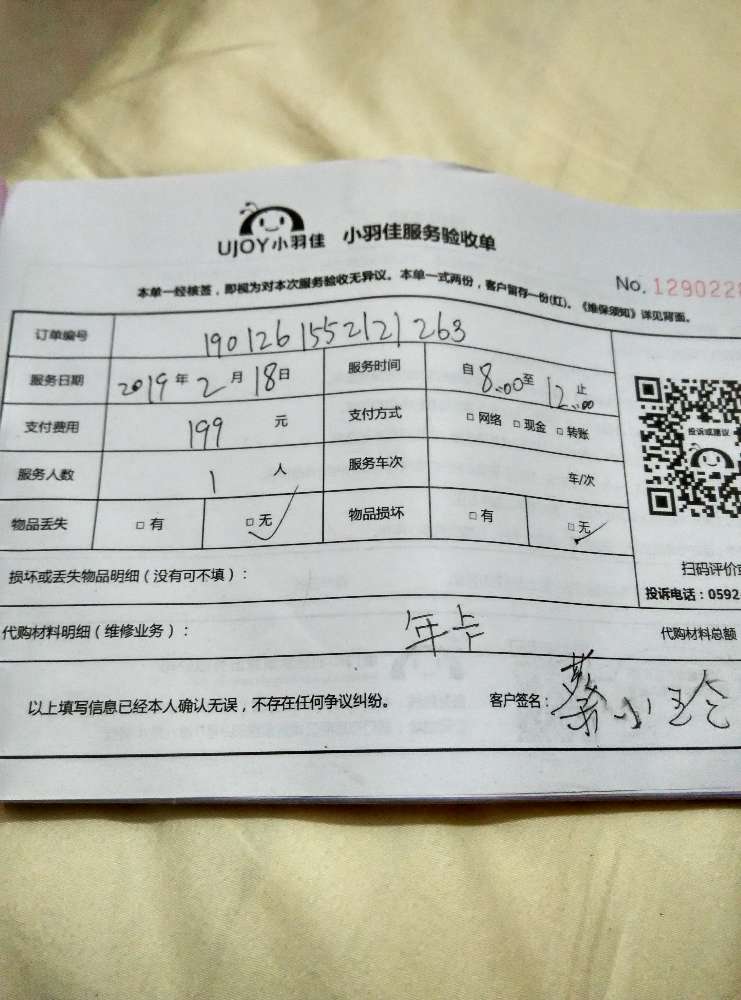 UJOY小羽佳 小羽佳服务验收单
本单一经核签，即视为对本次服务验收无异议。本单一式两份，客户留存一份(红)。《维保须知》详见背面。
No. 1290228
订单编号 1901261552121263
服务日期 2019年2月18日 服务时间 自8:00至12:00止
支付费用 199元 支付方式 □网络 □现金 □转账
服务人数 1人 服务车次 车/次
物品丢失 □有 □无✓ 物品损坏 □有 □无✓
投诉或建议
损坏或丢失物品明细（没有可不填）：
扫码评价
投诉电话：0592
代购材料明细（维修业务）： 年卡 代购材料总额
以上填写信息已经本人确认无误，不存在任何争议纠纷。 客户签名：蔡小玲